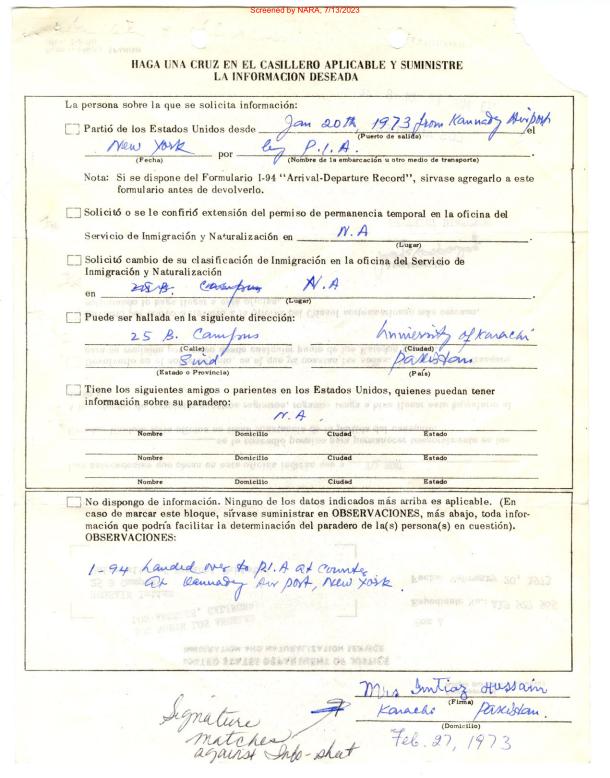 Screened by NARA, 7/13/2023
HAGA UNA CRUZ EN EL CASILLERO APLICABLE Y SUMINISTRE
LA INFORMACION DESEADA
La persona sobre la que se solicita información:
Partió de los Estados Unidos desde Jan 20th, 1973 from Kannady Airport el
(Puerto de salida)
New York por by P.I.A.
(Fecha) (Nombre de la embarcación u otro medio de transporte)
Nota: Si se dispone del Formulario I-94 "Arrival-Departure Record", sírvase agregarlo a este
formulario antes de devolverlo.
Solicitó o se le confirió extensión del permiso de permanencia temporal en la oficina del
Servicio de Inmigración y Naturalización en N.A
(Lugar)
Solicitó cambio de su clasificación de Inmigración en la oficina del Servicio de
Inmigración y Naturalización
en 25 B. Campus N.A
(Lugar)
Puede ser hallada en la siguiente dirección:
25 B. Campus University of Karachi
(Calle) (Ciudad)
Sind Pakistan
(Estado o Provincia) (País)
Tiene los siguientes amigos o parientes en los Estados Unidos, quienes puedan tener
información sobre su paradero:
N.A.
Nombre Domicilio Ciudad Estado
Nombre Domicilio Ciudad Estado
Nombre Domicilio Ciudad Estado
No dispongo de información. Ninguno de los datos indicados más arriba es aplicable. (En
caso de marcar este bloque, sírvase suministrar en OBSERVACIONES, más abajo, toda infor-
mación que podría facilitar la determinación del paradero de la(s) persona(s) en cuestión).
OBSERVACIONES:
I-94 handed over to P.I.A at Counter
at Kannady Air port, New York.
Mrs Imtiaz Hussain
(Firma)
Karachi Pakistan.
(Domicilio)
Feb. 27, 1973
Signature
matches
against Info-sheet